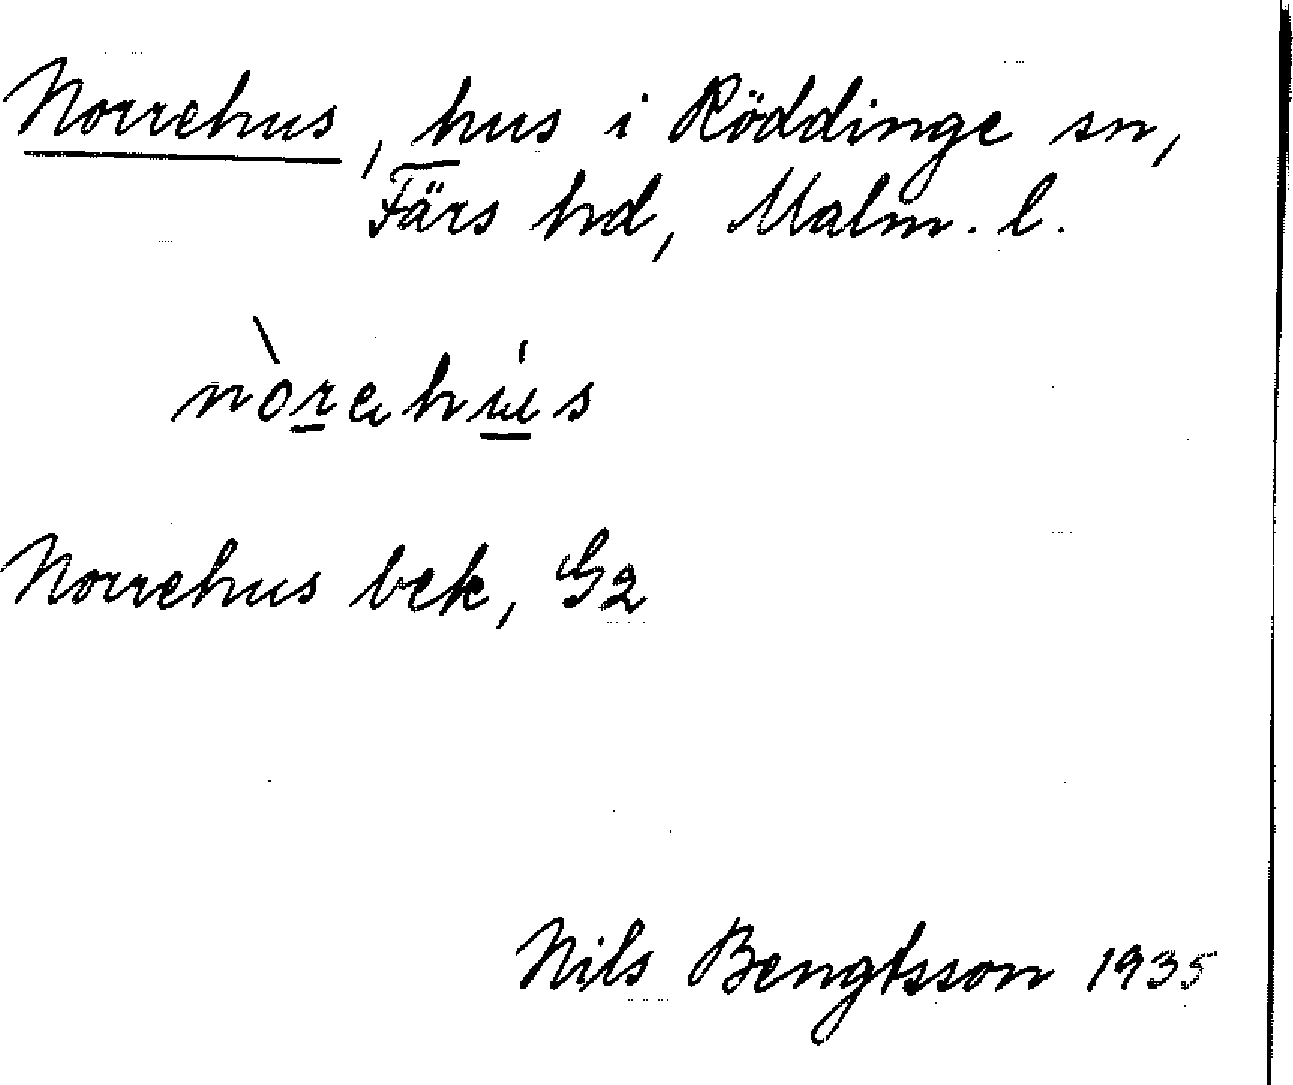 Norrehus, hus i Röddinge sn,
Färs hd, Malm. l.
nòrehu̇s
Norrehus bek, G2
Nils Bengtsson 1935